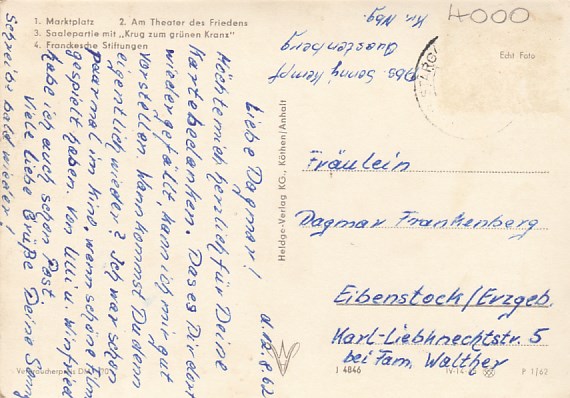 1. Marktplatz 2. Am Theater des Friedens
3. Saalepartie mit „Krug zum grünen Kranz"
4. Franckesche Stiftungen
4000
Echt Foto
Abs. Sonny Kempf
Kr. Nbg.
d. 12.8.62
Liebe Dagmar!
Möchte mich herzlich für Deine
Karte bedanken. Das es Dir dort
wieder gefällt, kann ich mir gut
vorstellen. Wann kommst Du denn
eigentlich wieder? Ich war schon
paarmal im Kino, wenn schöne Film
gespielt haben. Von Ulli u. Winfried
habe ich auch schon Post.
Viele liebe Grüße Deine Sonny
Schreibe bald wieder!
Heldge-Verlag KG., Köthen/Anhalt
Fräulein
Dagmar Frankenberg
Eibenstock/Erzgeb.
Karl-Liebknechtstr. 5
bei Fam. Walther
J 4846
P 1/62